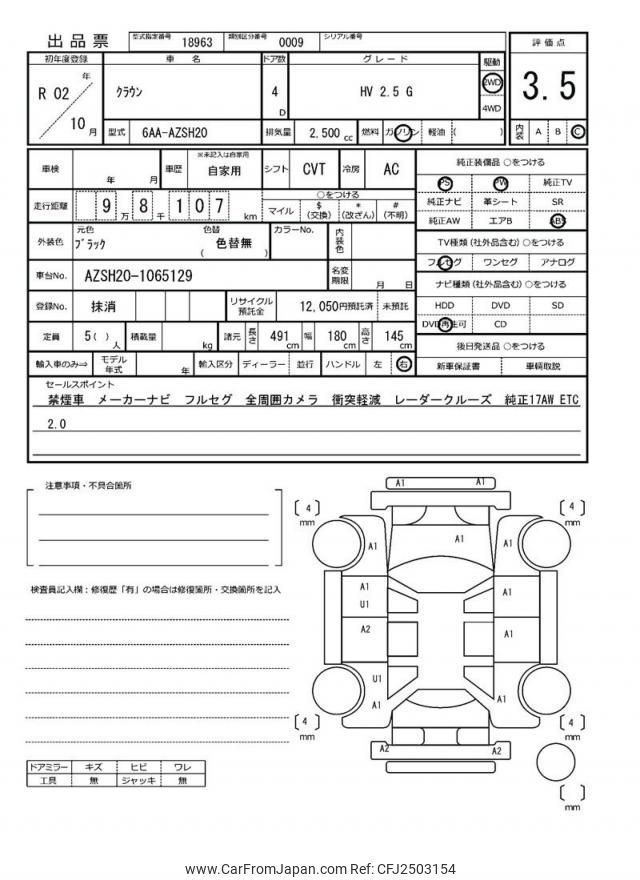 出品票 型式指定番号 18963 類別区分番号 0009 シリアル番号
初年度登録 車名 ドア数 グレード 駆動 評価点
R 02 年 10 月 クラウン 4 D HV 2.5 G 2WD 4WD 3.5
型式 6AA-AZSH20 排気量 2,500 cc 燃料 ガソリン 軽油 ( ) 内装 A B C
車検 年 月 車歴 ※未記入は自家用 自家用 シフト CVT 冷房 AC
走行距離 9 万 8 千 1 0 7 km ○をつける マイル $ (交換) * (改ざん) # (不明)
外装色 元色 ブラック 色替 ( 色替無 ) カラーNo. 内装色
車台No. AZSH20-1065129 名変期限 月 日
登録No. 抹消 リサイクル預託金 12,050円預託済 未預託
定員 5( ) 人 積載量 kg 諸元 長さ 491 cm 幅 180 cm 高さ 145 cm
輸入車のみ⇒ モデル年式 年 輸入区分 ディーラー 並行 ハンドル 左 右
純正装備品 ○をつける
PS PW 純正TV
純正ナビ 革シート SR
純正AW エアB ABS
TV種類 (社外品含む) ○をつける
フルセグ ワンセグ アナログ
ナビ種類 (社外品含む) ○をつける
HDD DVD SD
DVD再生可 CD
後日発送品 ○をつける
新車保証書 車輌取説
セールスポイント
禁煙車 メーカーナビ フルセグ 全周囲カメラ 衝突軽減 レーダークルーズ 純正17AW ETC
2.0
注意事項・不具合箇所
検査員記入欄：修復歴「有」の場合は修復箇所・交換箇所を記入
ドアミラー キズ ヒビ ワレ
工具 無 ジャッキ 無
A1 A1
4 mm 4 mm
A1 A1 A1
A1 A1
U1
A2 A1
U1
A1 A1
4 mm 4 mm
A2 A2
mm
www.CarFromJapan.com Ref: CFJ2503154